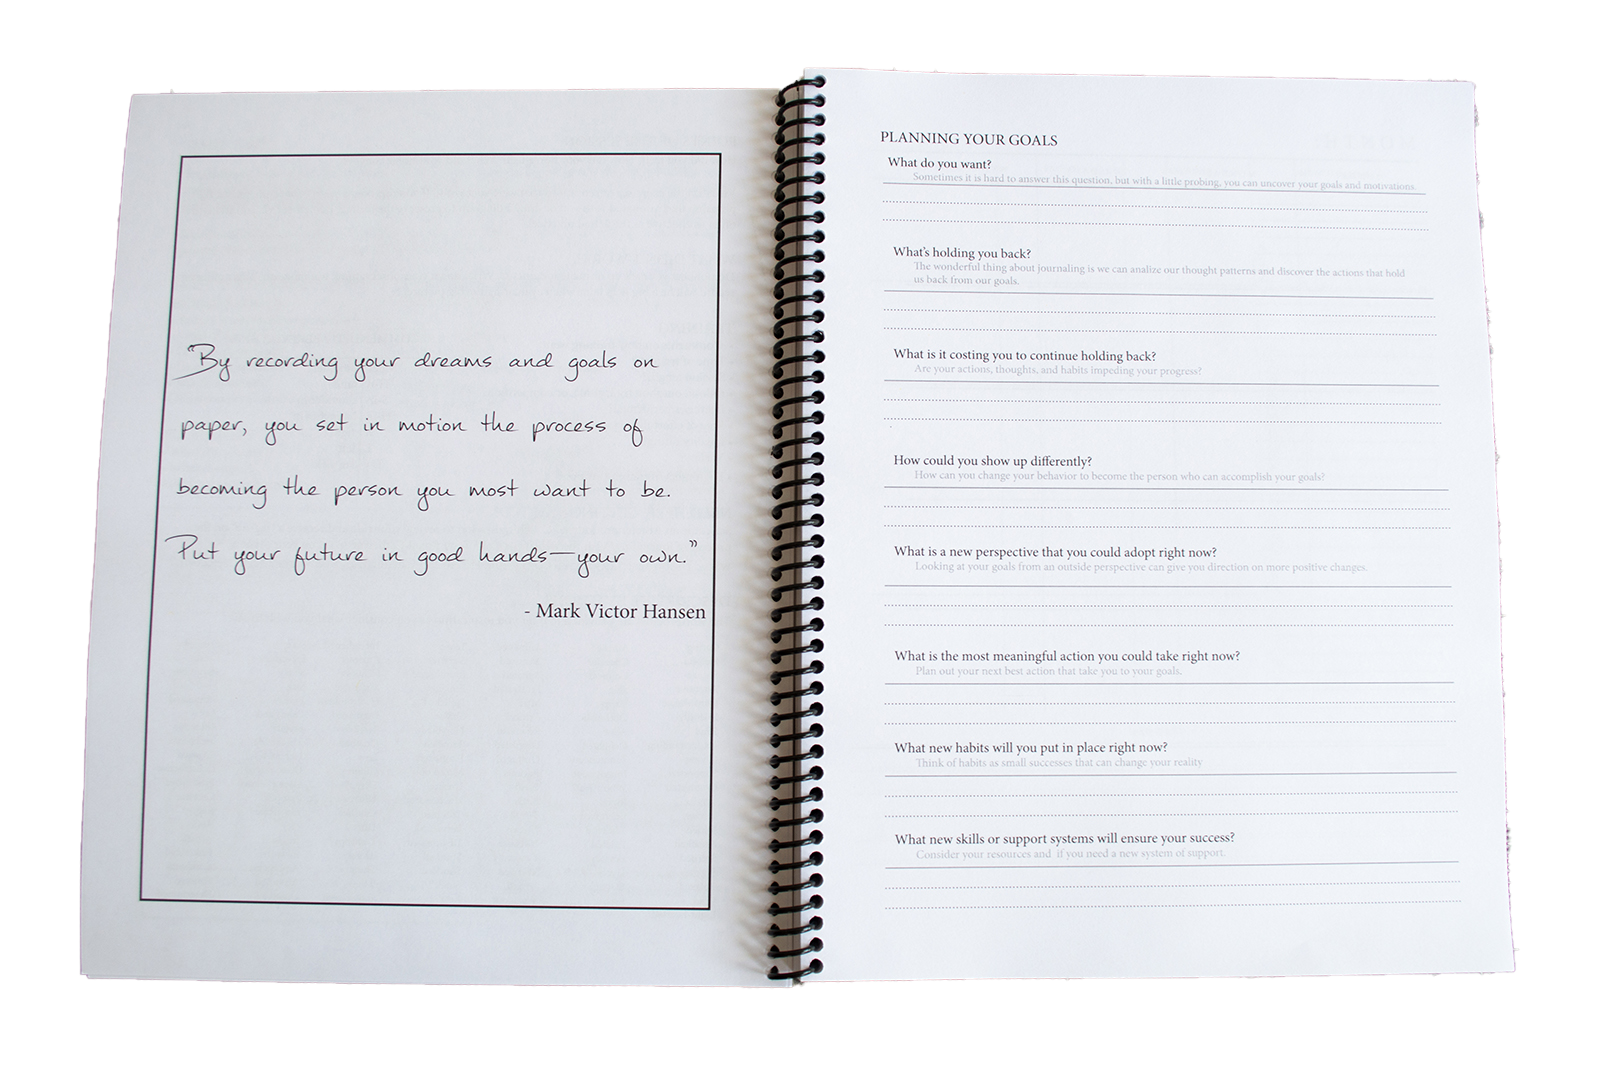 "By recording your dreams and goals on
paper, you set in motion the process of
becoming the person you most want to be.
Put your future in good hands—your own."
- Mark Victor Hansen
PLANNING YOUR GOALS
What do you want?
Sometimes it is hard to answer this question, but with a little probing, you can uncover your goals and motivations.
What's holding you back?
The wonderful thing about journaling is we can analize our thought patterns and discover the actions that hold
us back from our goals.
What is it costing you to continue holding back?
Are your actions, thoughts, and habits impeding your progress?
How could you show up differently?
How can you change your behavior to become the person who can accomplish your goals?
What is a new perspective that you could adopt right now?
Looking at your goals from an outside perspective can give you direction on more positive changes.
What is the most meaningful action you could take right now?
Plan out your next best action that take you to your goals.
What new habits will you put in place right now?
Think of habits as small successes that can change your reality
What new skills or support systems will ensure your success?
Consider your resources and if you need a new system of support.